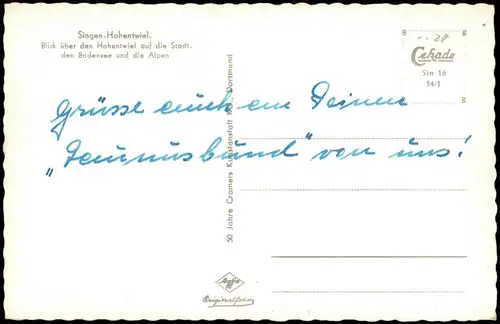 Singen-Hohentwiel.
Blick über den Hohentwiel auf die Stadt,
den Bodensee und die Alpen
8 8
Cekade
Sin 16
54/1
8 8
Grüsse auch an Deinen
„Tennisbund" von uns!
50 Jahre Cramers Kunstanstalt KG, Dortmund
Agfa
Originalfoto